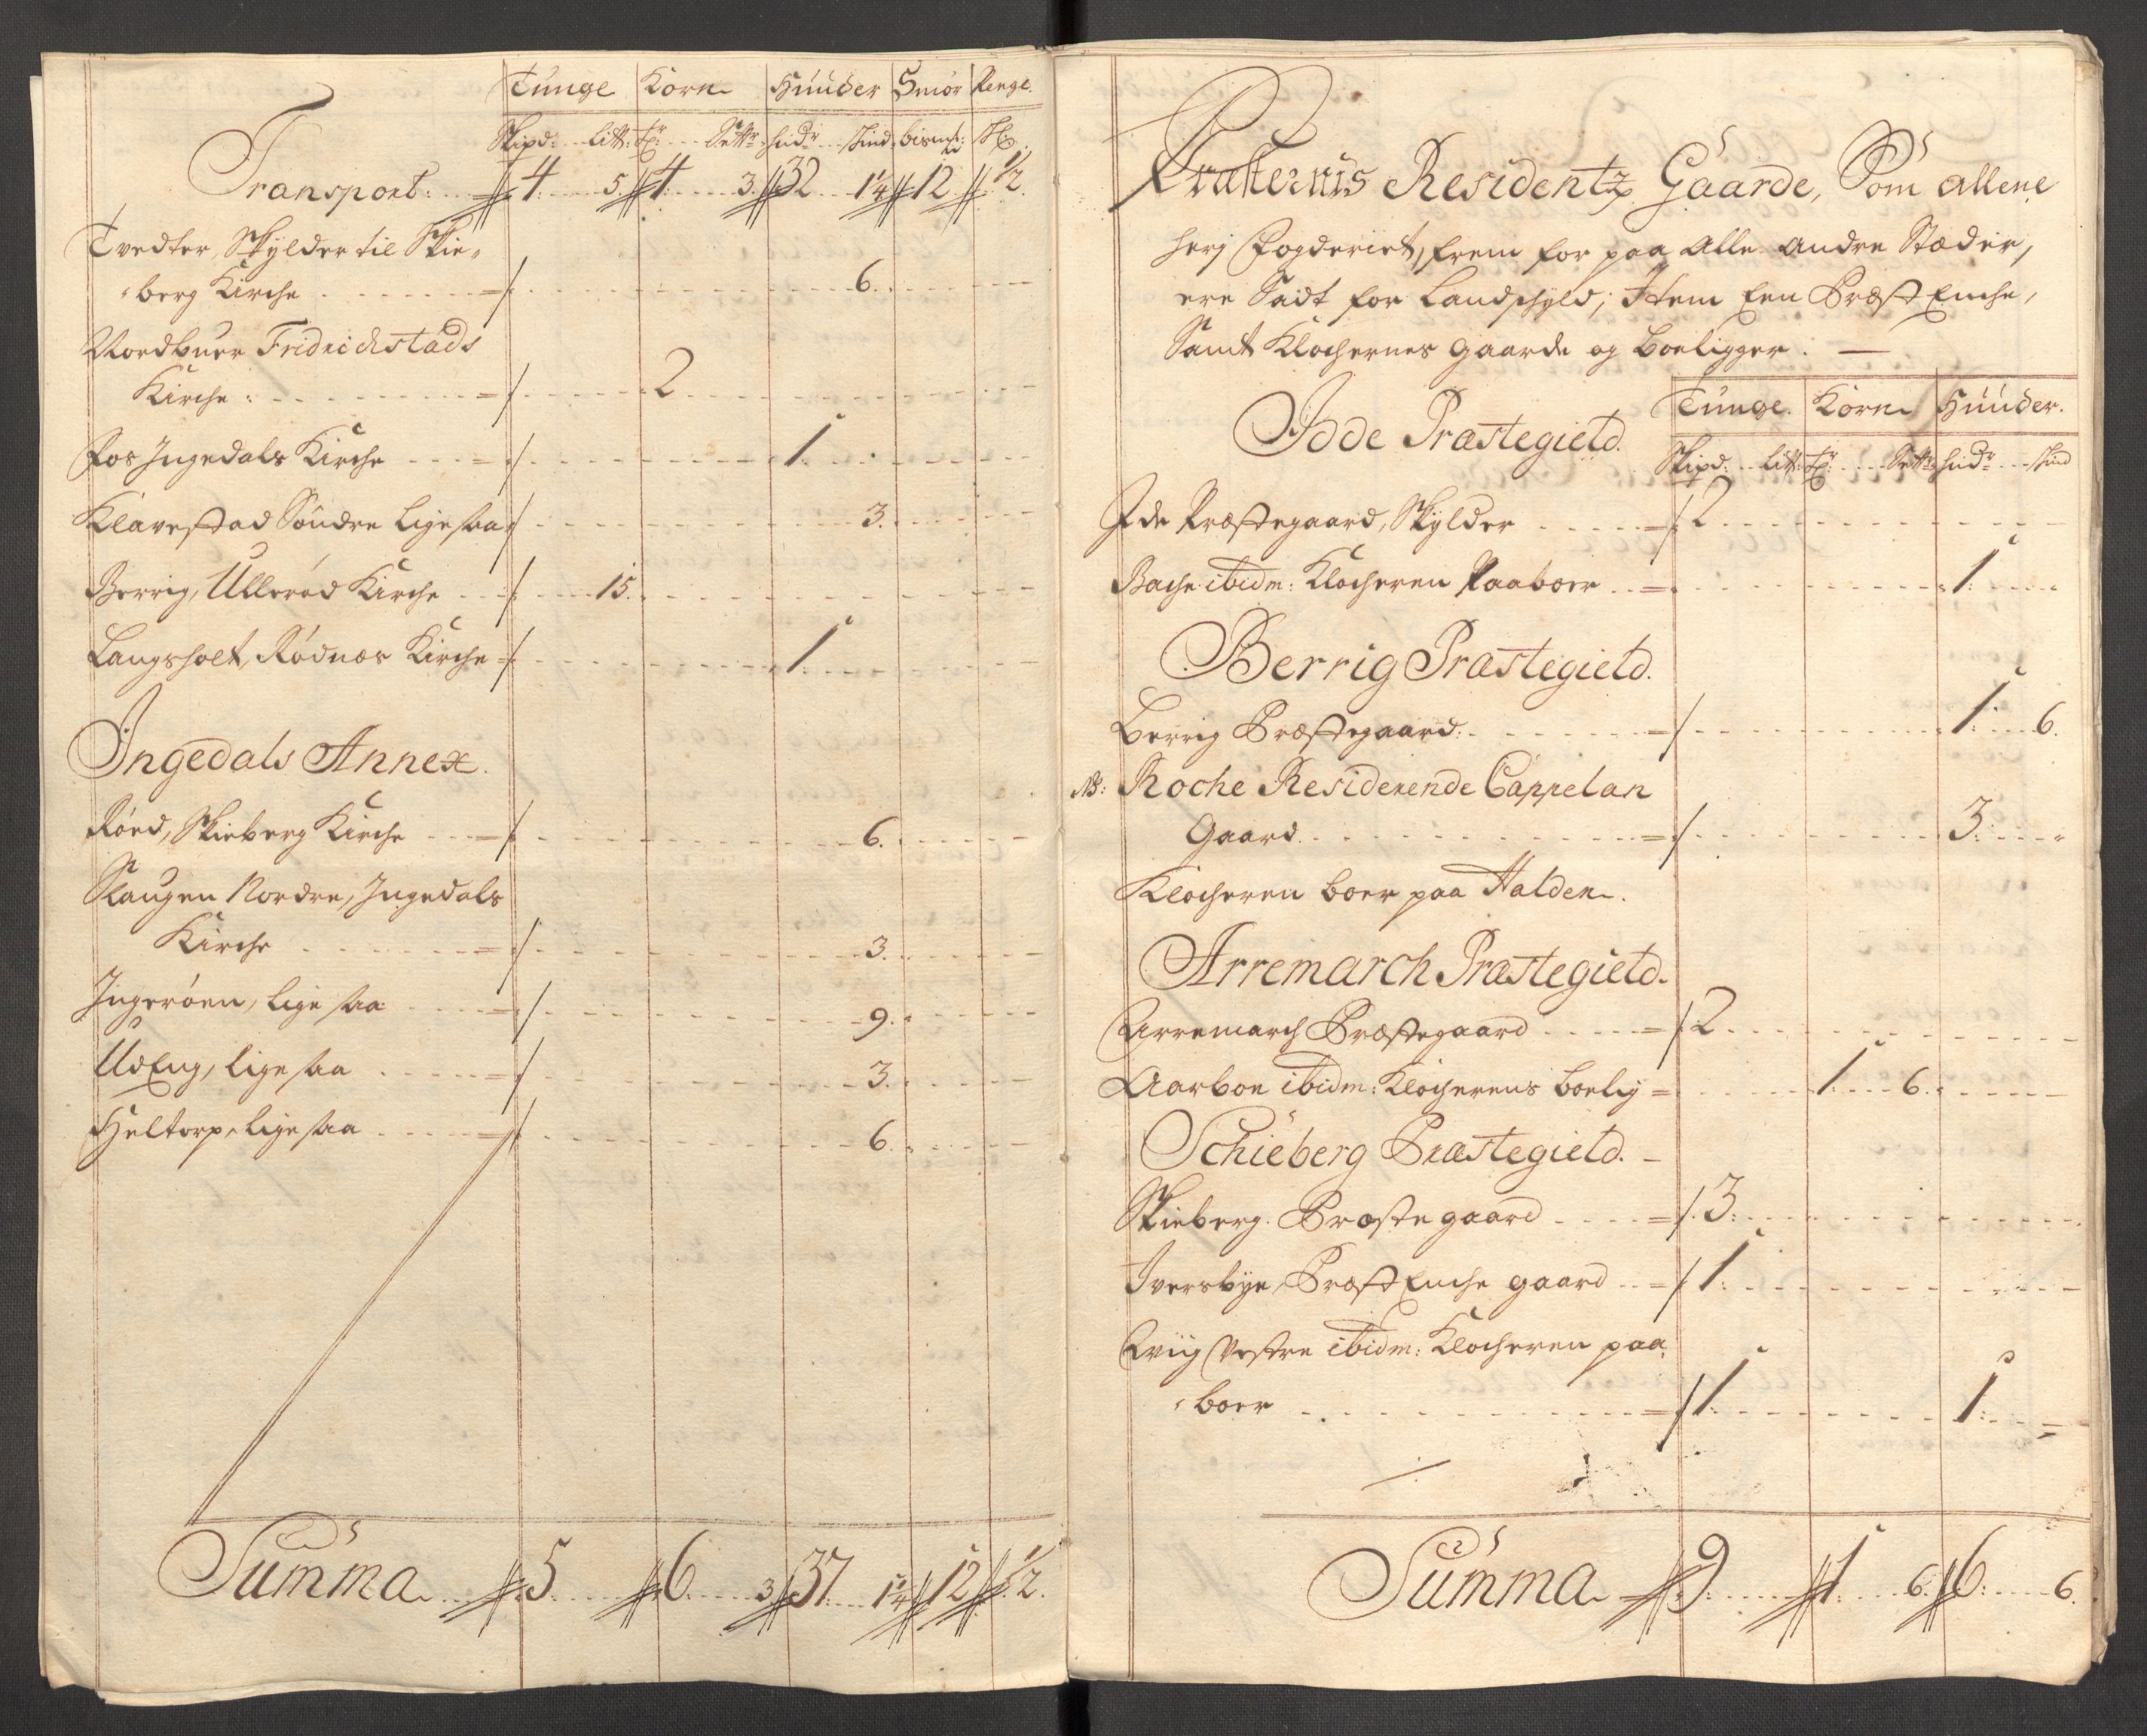 Tunge Korn Huuder Smör Penge.
Skipd: litt: Tr: Sett: hudr skind bismr: 
Transport: 4 5. 4 3. 32 1¼ 12 ½.
Tvedter, Skylder til Skie-
berg Kirche 6.
Nordbuer Fridrichstads
Kirche: 2
Fos Ingedals Kirche 1.
Klavestad Söndre lige saa 3.
Berrig, Ullerød Kirche 15.
Langsholt, Rødnes Kirche 1.
Ingedals Annex.
Röed, Skieberg Kirche 6.
Slaugen Nordre, Ingedals
Kirche 3.
Ingeröen, lige saa 9.
UdEng, lige saa 3.
Heltorp, lige saa 6.
Summa 5. 6. 3 37 1¼ 12 ½.
Præsternis Residentz Gaarde, Som allene
herj Fogderiet, frem for paa Alle andre Stæder,
ere Sadt for Landschyld; Item Een Præst Enche,
Samt Klochernes gaarde og boeligger.
Idde Præstegield. Tunge. Korn Huuder.
Skipd: litt: Tr: Sett: hudr skind
Ide Præstegaard, Skylder 2
Bache ibidm: Klocheren Paaboer 1.
Berrig Præstegield.
Berrig Præstegaard: 1. 6.
NB: Roche Residerende Cappelan
Gaard 3.
Klocheren boer paa Halden.
Arremarch Præstegield.
Arremarch Præstegaard 2
Aarboe ibidm: Klocherens boelig 1. 6.
Schieberg Præstegield.
Skieberg Præstegaard 3.
Iversbye, Præst Enche gaard 1.
Qviig Vestre ibidm: Klocheren paa-
boer 1. 1.
Summa 9. 1. 6. 6. 6.